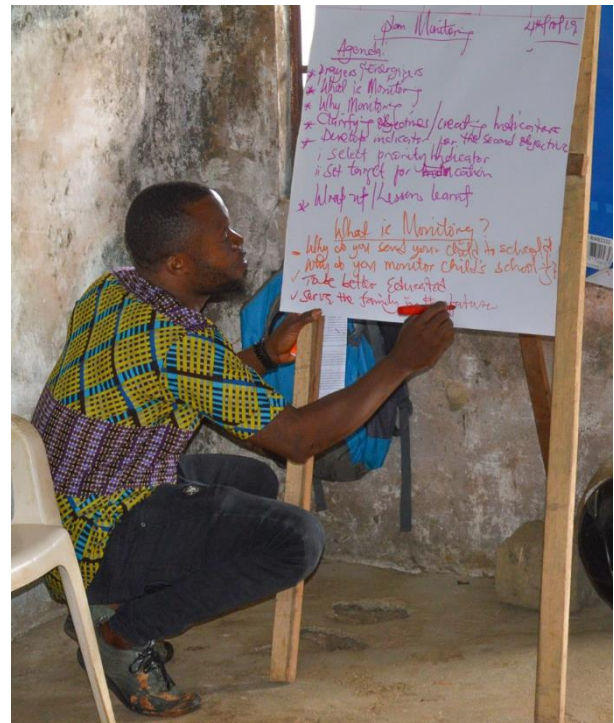 plan Monitoring
Agenda:
* prayers & Energizers
* What is Monitoring
* Why Monitoring
* Clarifying objectives/creating Indicators
* Develop indicator for the second objective
i select priority Indicator
ii set target for indication
* Wrap up/Lessons learnt
What is Monitoring?
- Why do you send your child to school?
Why do you monitor child's school
✓ To be better Educated
✓ Serve the family in the future